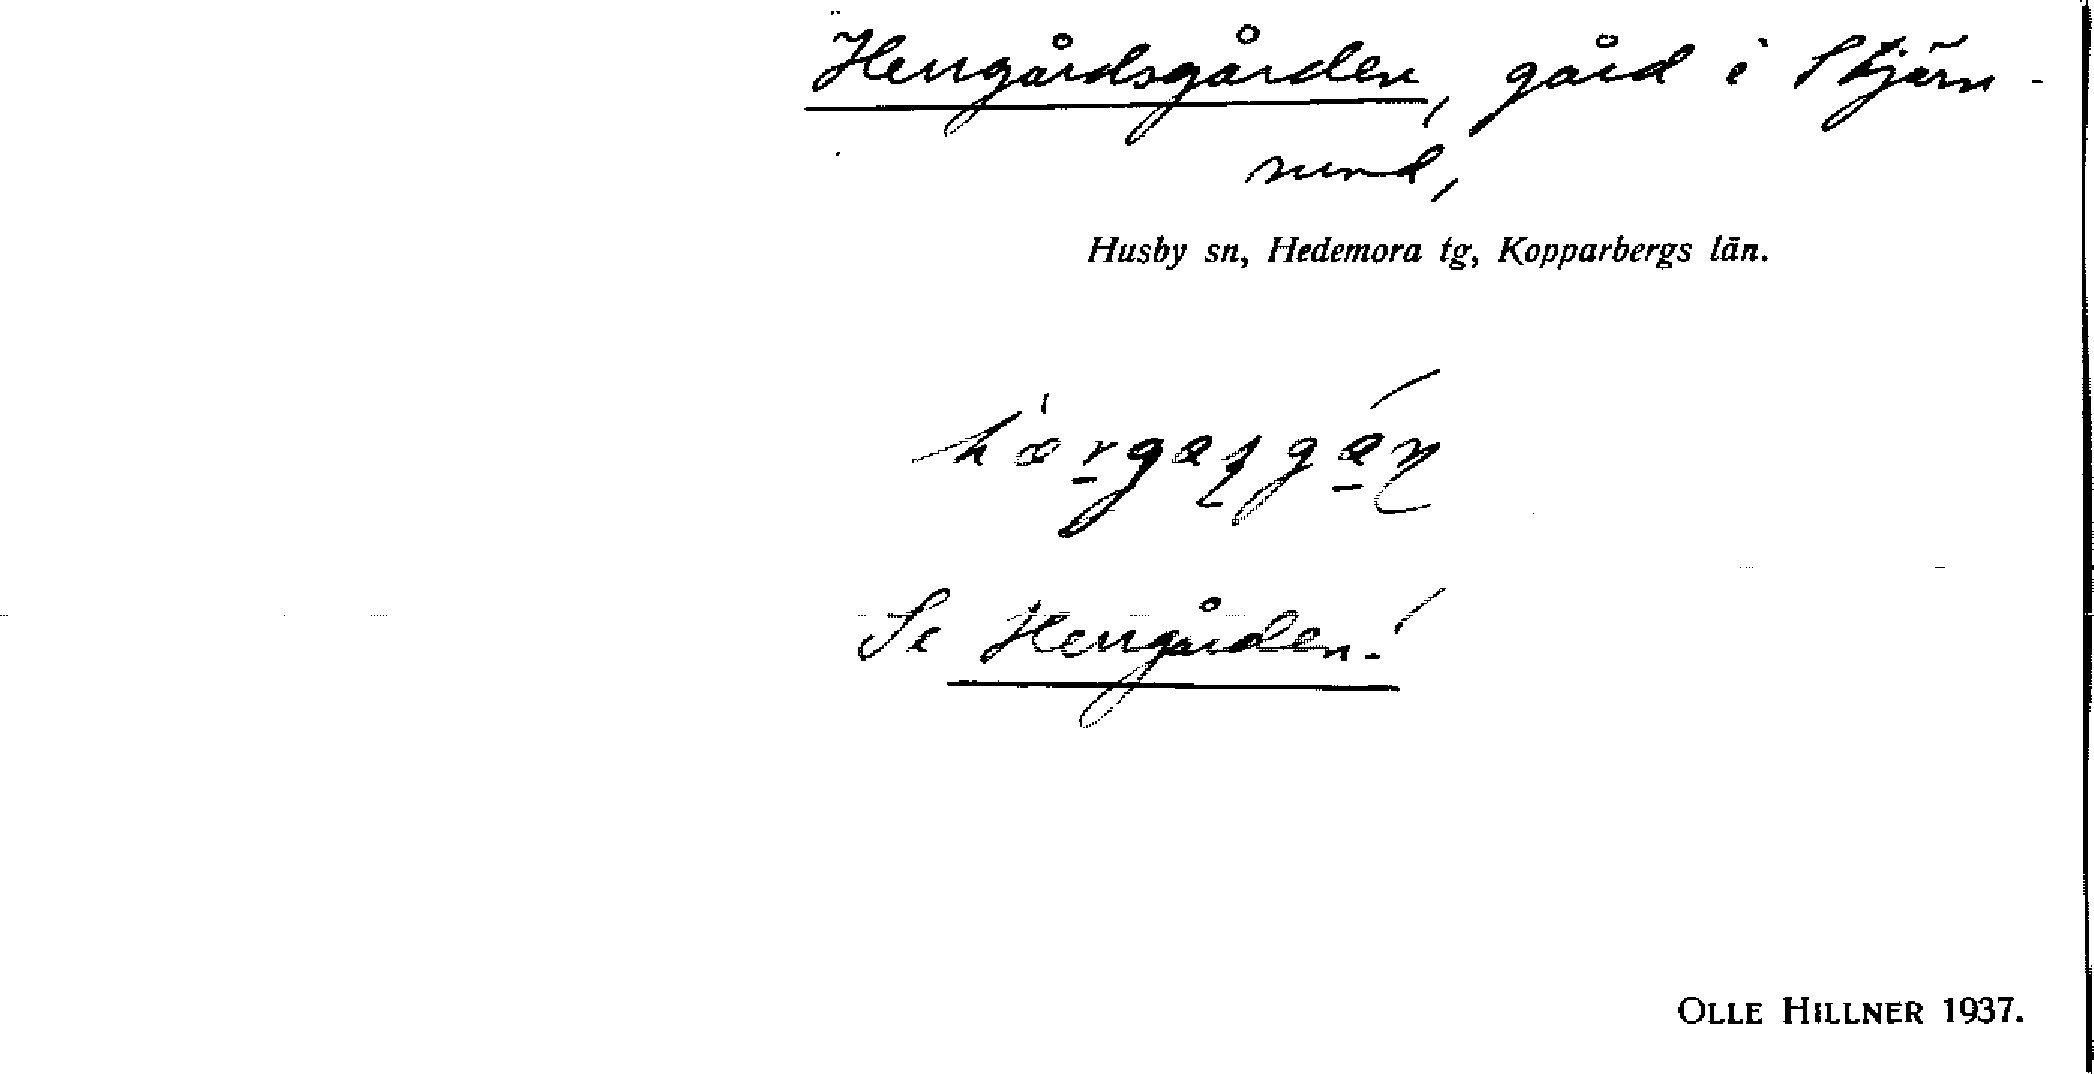 Herrgårdsgården, gård i Stjärn-
sund,
Husby sn, Hedemora tg, Kopparbergs län.
Se Herrgården!
OLLE HILLNER 1937.